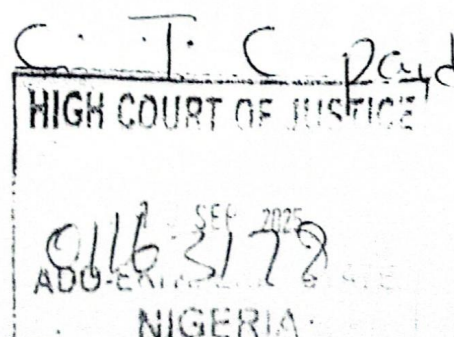 C. T. C paid
HIGH COURT OF JUSTICE
SEP 2025
01163178
ADO-EKITI STATE
NIGERIA